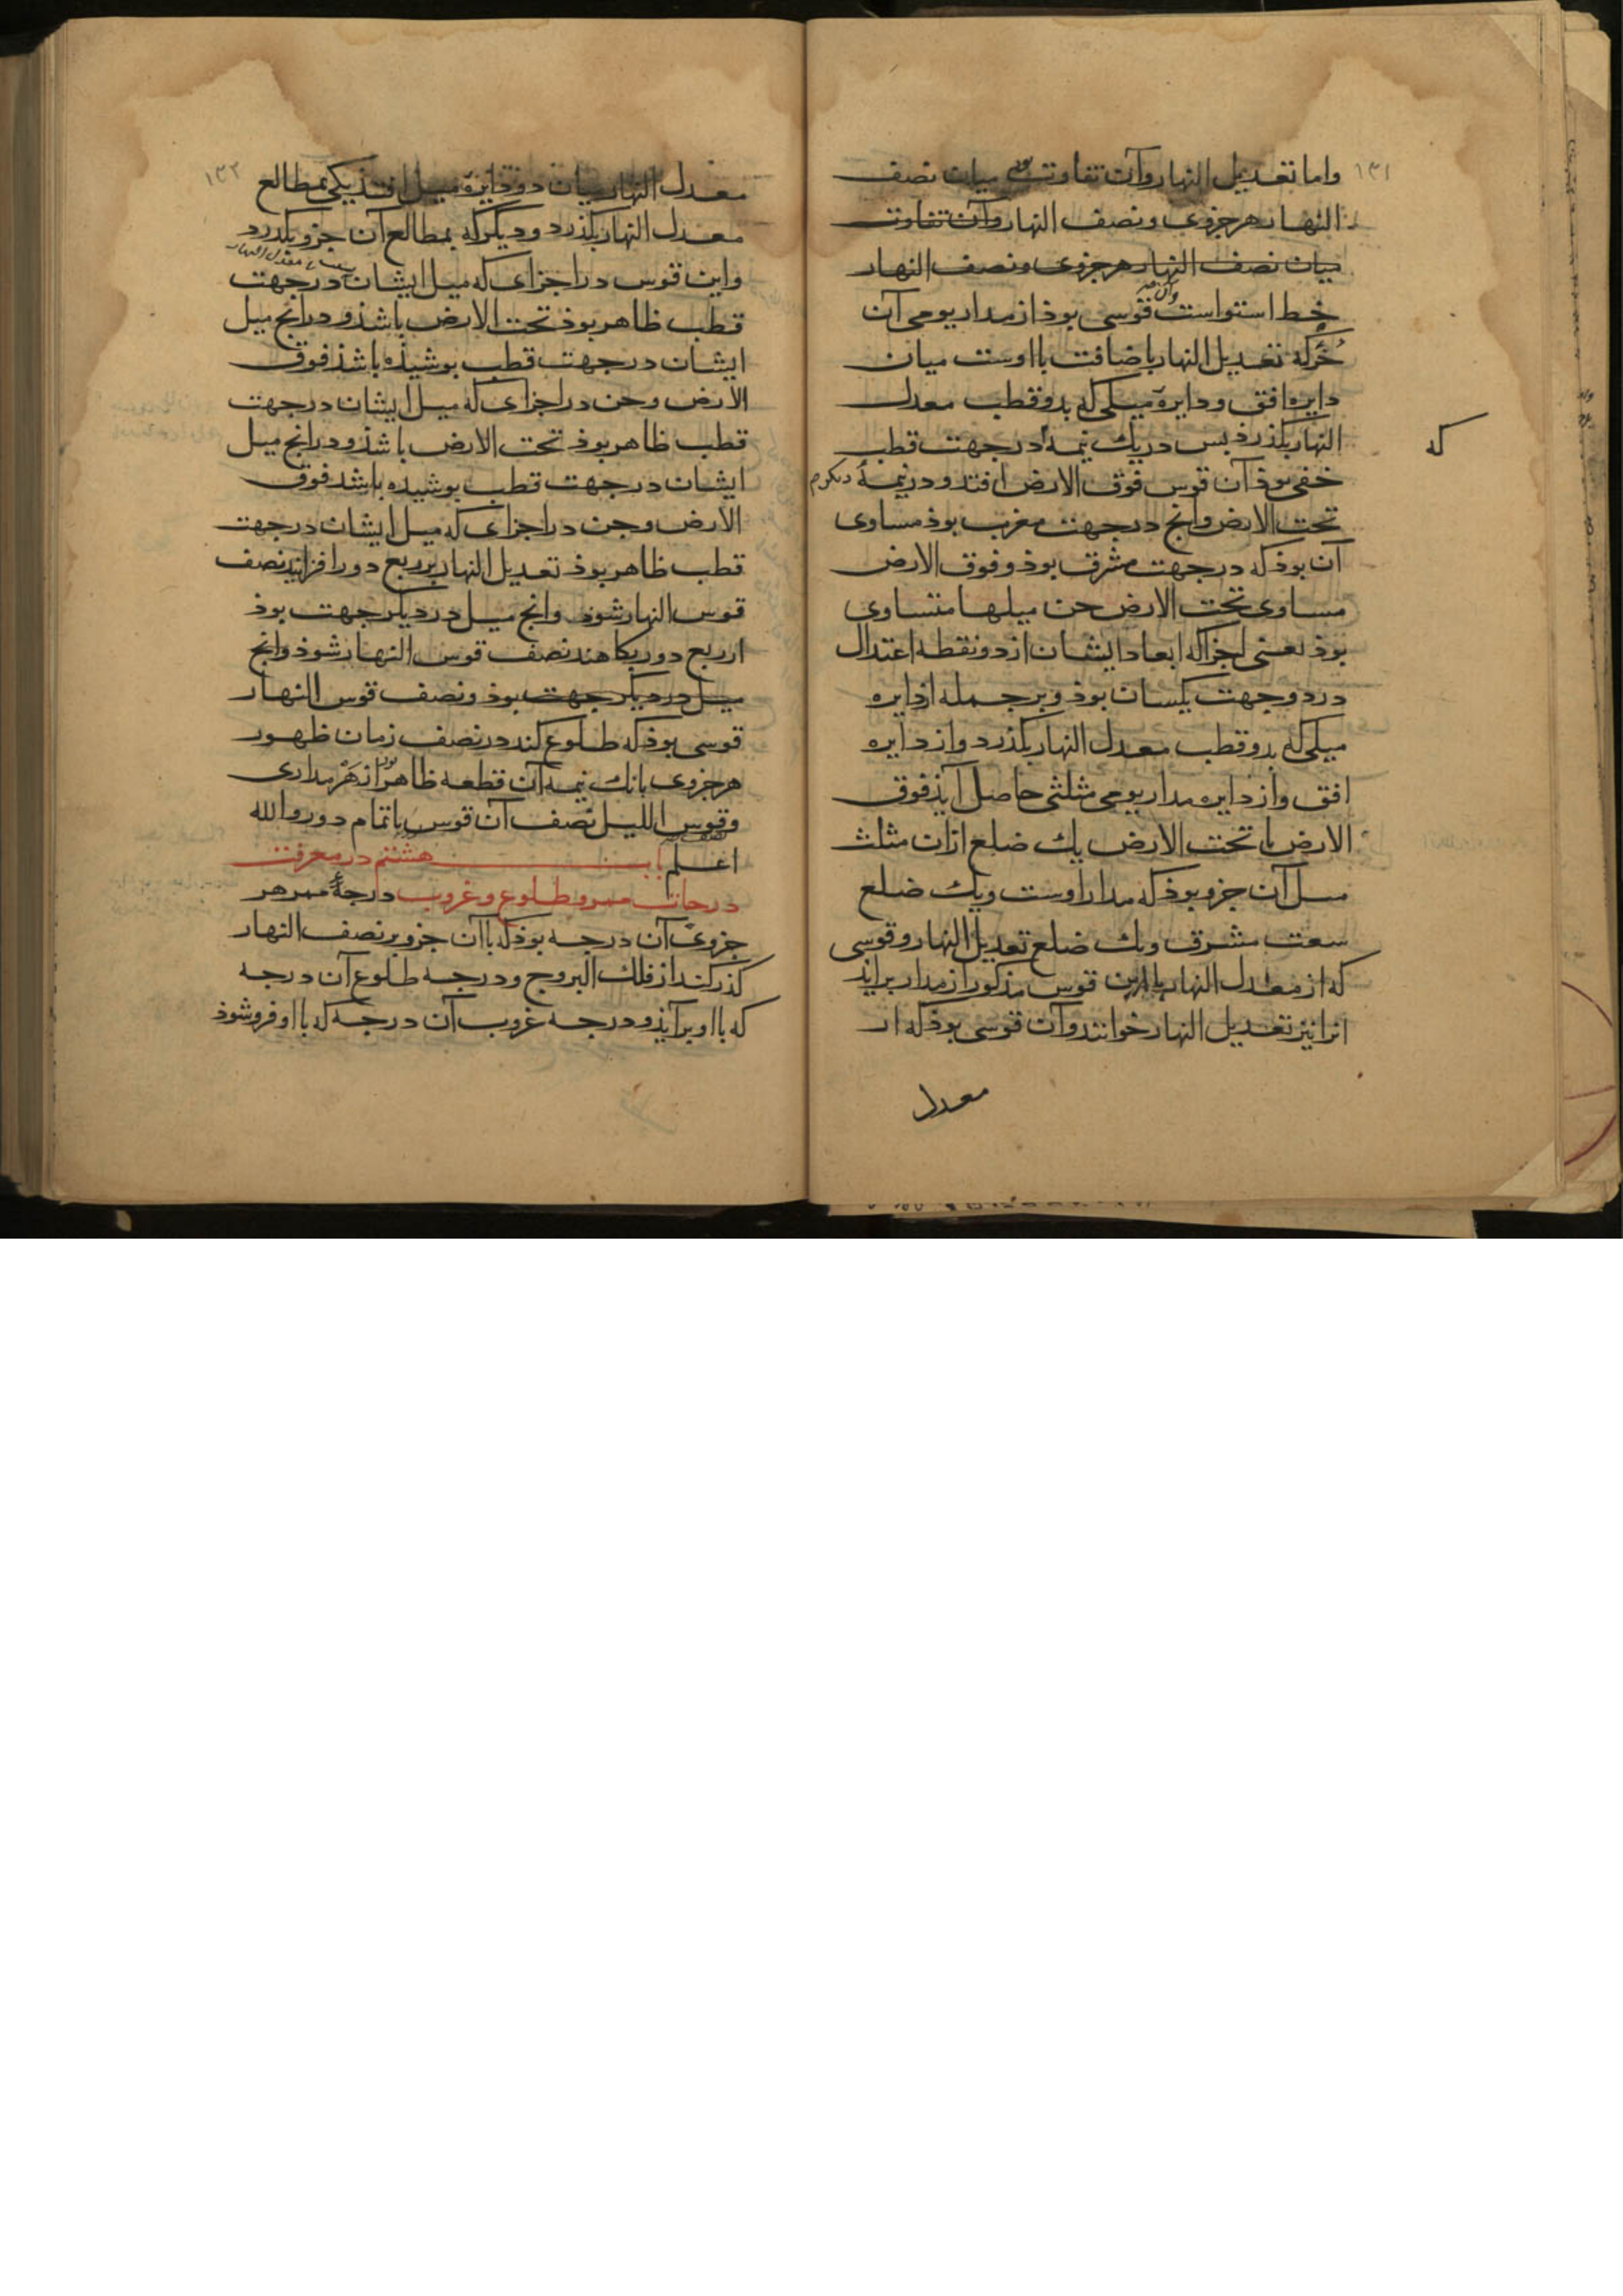 ۱۳۱
واما تعدیل النهار وآن تفاوت بود میان نصف
النهار هر جزوی ونصف النهار وآن تفاوت
میان نصف النهار هر جزوی ونصف النهار
خط استواست وآن قوسی بوذ از مدار یومی آن
جزء که تعدیل النهار باضافت بااوست میان
دایره افق ودایرهٔ میلی که بدو قطب معدل
النهار بکذرذ بس دریك نیمه در جهت قطب
که
خفی بوذ آن قوس فوق الارض افتد ودر نیمهٔ دیکرم
تحت الارض وانج در جهت مغرب بوذ مساوی
آن بوذ که در جهت مشرق بوذ وفوق الارض
مساوی تحت الارض جن میلها متساوی
بوذ یعنی اجزا که ابعاد ایشان از دو نقطه اعتدال
در دو جهت یکسان بوذ وبر جمله از دایره
میلی که بدو قطب معدل النهار بکذرد واز دایره
افق واز دایره مدار یومی مثلثی حاصل آیذ فوق
الارض یا تحت الارض یك ضلع ازان مثلث
میل آن جزو بوذ که مدار اوست ویك ضلع
سعت مشرق ویك ضلع تعدیل النهار وقوسی
که از معدل النهار باازین قوس مذکور از مدار براید
انرا نیز تعدیل النهار خوانند وآن قوسی بوذ که از
معدل
۱۳۲
معدل النهار میان دو دایرهٔ میل افتذ یکی بمطالع
معدل النهار بکذرد ودیگر که بمطالع آن جزو بکذرد
واین قوس در اجزای که میل ایشان از معدل النهار در جهت
قطب ظاهر بوذ تحت الارض باشذ ودر انج میل
ایشان در جهت قطب بوشیذه باشذ فوق
الارض وجن در اجزای که میل ایشان در جهت
قطب ظاهر بوذ تحت الارض باشذ ودر انج میل
ایشان در جهت قطب بوشیده باشد فوق
الارض وجن در اجزای که میل ایشان در جهت
قطب ظاهر بوذ تعدیل النهار بر ربع دور افزایند نصف
قوس النهار شوذ وانج میل در دیکر جهت بوذ
از ربع دور بکاهند نصف قوس النهار شوذ وانج
میل در دیکر جهت بوذ ونصف قوس النهار
قوسی بوذ که طلوع کند در نصف زمان ظهور
هر جزوی یا نك نیمه آن قطعه ظاهر بود از هر مداری
وقوس اللیل نصف آن قوس یا تمام دور والله
اعلم باب هشتم در معرفت
درجات ممر وطلوع وغروب درجهٔ ممر هر
جزوی آن درجه بوذ که باآن جزو بر نصف النهار
کذر کند از فلك البروج ودرجه طلوع آن درجه
که بااو برآیذ ودرجه غروب آن درجه که بااو فروشوذ